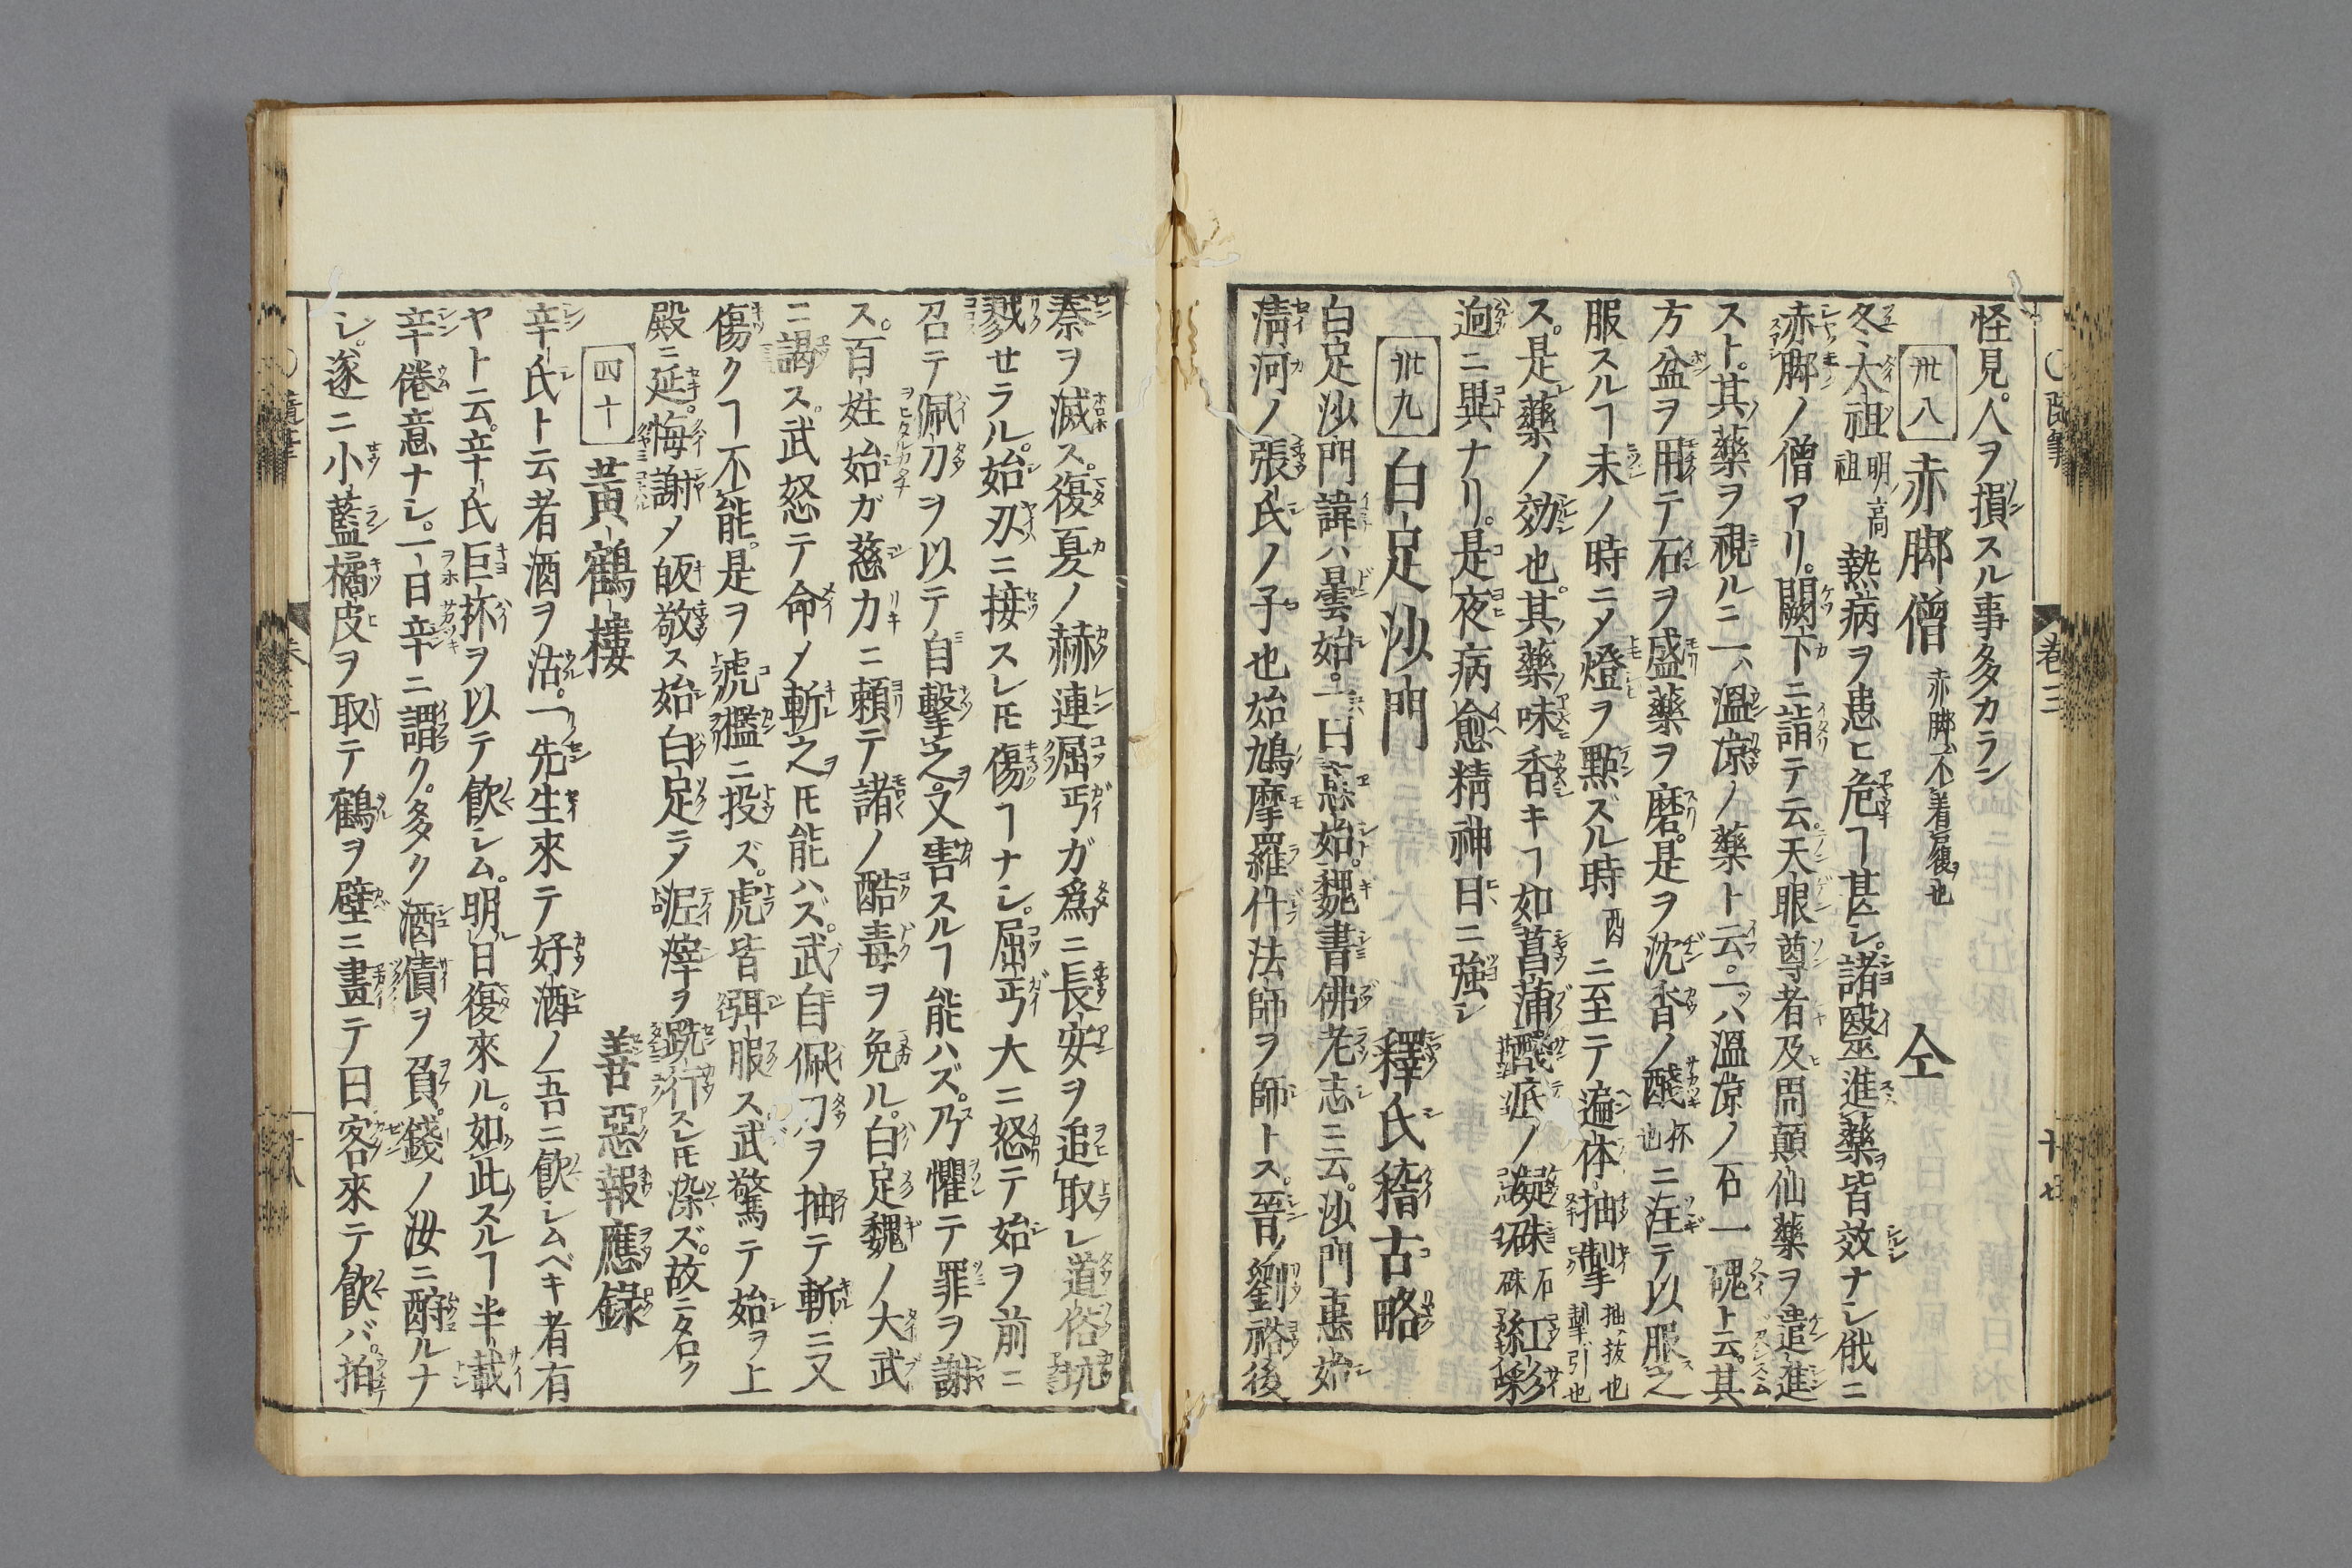 怪見人ヲ損スル事多カラン
卅八 赤脚僧 赤脚不着履也 仝
冬太祖 明高祖 熱病ヲ患ヒ危ヿ甚シ諸毉進藥皆效ナシ俄ニ
赤脚ノ僧アリ闕下ニ詣テ云天眼尊者及周顛仙藥ヲ遣進
スト其藥ヲ視ルニ一ハ溫凉ノ藥ト云一ハ溫凉ノ石一塊ト云其
方盆ヲ用テ石ヲ盛藥ヲ磨是ヲ沈香ノ醆 杯也 ニ注テ以服之
服スルヿ未ノ時ニメ燈ヲ點ズル時 酉 ニ至テ遍体抽掣 抽抜也 掣引也
ス是藥ノ効也其藥味香キヿ如菖蒲醆底ノ凝硃 石硃 紅彩
逈ニ異ナリ是夜病愈精神日ニ強シ
卅九 白足沙門 釋氏稽古略
白足沙門諱ハ曇始一曰惠始魏書佛老志ニ云沙門惠始
淸河ノ張氏ノ子也始鳩摩羅什法師ヲ師トス晉ノ劉裕後
卷三
十七
秦ヲ滅ス復夏ノ赫連屈丐ガ爲ニ長安ヲ追取レ道俗坑
戮セラル始刃ニ接スレ𪜈傷ヿナシ屈丐大ニ怒テ始ヲ前ニ
召テ佩刀ヲ以テ自擊之又害スルヿ能ハズ乃懼テ罪ヲ謝
ス百姓始ガ慈力ニ頼テ諸ノ酷毒ヲ免ル白足魏ノ大武
ニ謁ス武怒テ命メ斬之𪜈能ハズ武自佩刀ヲ抽テ斬ニ又
傷クヿ不能是ヲ虎檻ニ投ズ虎皆弭服ス武驚テ始ヲ上
殿ニ延悔謝メ皈敬ス始白足ニメ泥滓ヲ跣行スレ𪜈染ズ故ニ名ク
四十 黃鶴樓 善惡報應錄
辛氏ト云者酒ヲ沽一先生來テ好酒ノ吾ニ飮シムベキ者有
ヤト云辛氏巨杯ヲ以テ飮シム明日復來ル如此スルヿ半載
辛倦意ナシ一日辛ニ謂ク多ク酒債ヲ負錢ノ汝ニ酧ルナ
シ遂ニ小藍橘皮ヲ取テ鶴ヲ壁ニ畫テ曰客來テ飮バ拍